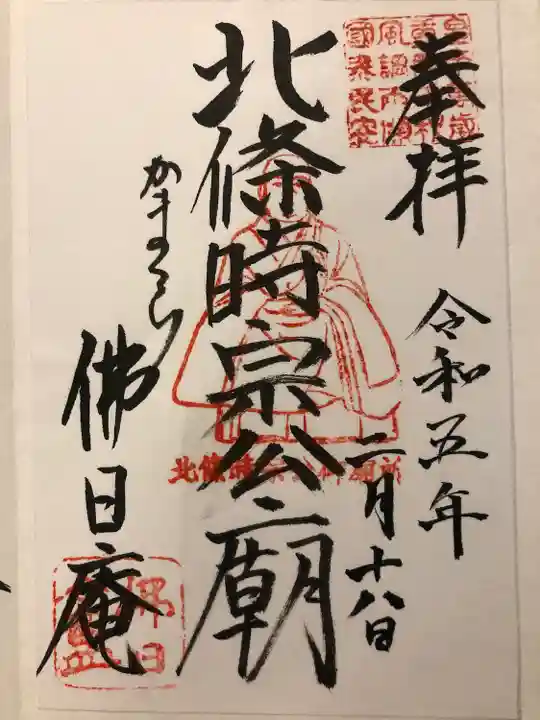 奉拝
令和五年
二月十八日
北條時宗公廟
かまくら
佛日庵
北條時宗公御廟所
佛日庵